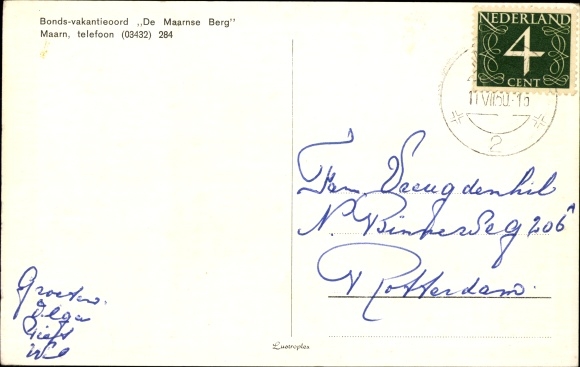 Bonds-vakantieoord „De Maarnse Berg"
Maarn, telefoon (03432) 284
NEDERLAND
4
CENT
2
Fam. Vreugdenhil
N. Binnenweg 206
Rotterdam
Groeten
Olga
Piet
Wil
Lustroplex